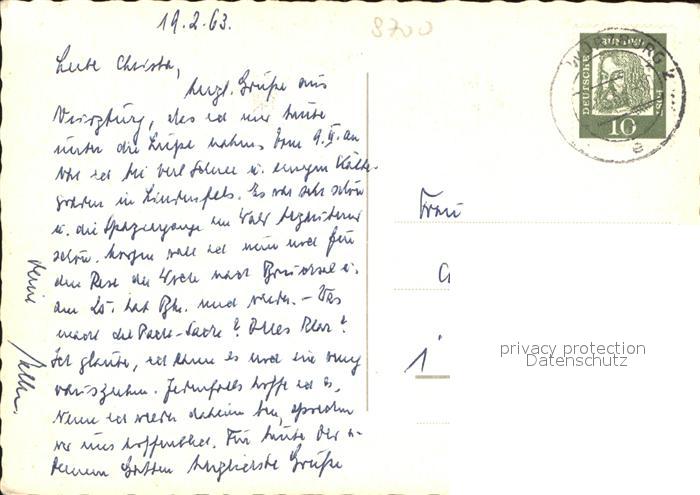 19.2.63.
8700
Liebe Christa,
herzl. Grüße aus
Würzburg, das ich mir heute
unter die Lupe nahm. Vom 9.II. an
war ich bei viel Schnee u. einigen Kälte-
graden in Lindenfels. Es war sehr schön
u. die Spaziergänge im Wald
schön. Morgen will ich nun noch für
den Rest der Woche nach u.
am 25. hat wieder. – Was
macht die Sache? Alles klar?
Ich glaube, ich kann es noch ein wenig
Jedenfalls hoffe ich es,
Wenn ich wieder daheim bin, sprechen
wir uns hoffentlich. Für heute Dir u.
Deinem Gatten herzlichste Grüße
Deine
Frau
G
1
DEUTSCHE
BUNDES
POST
10
WÜRZBURG 2
e
privacy protection
Datenschutz